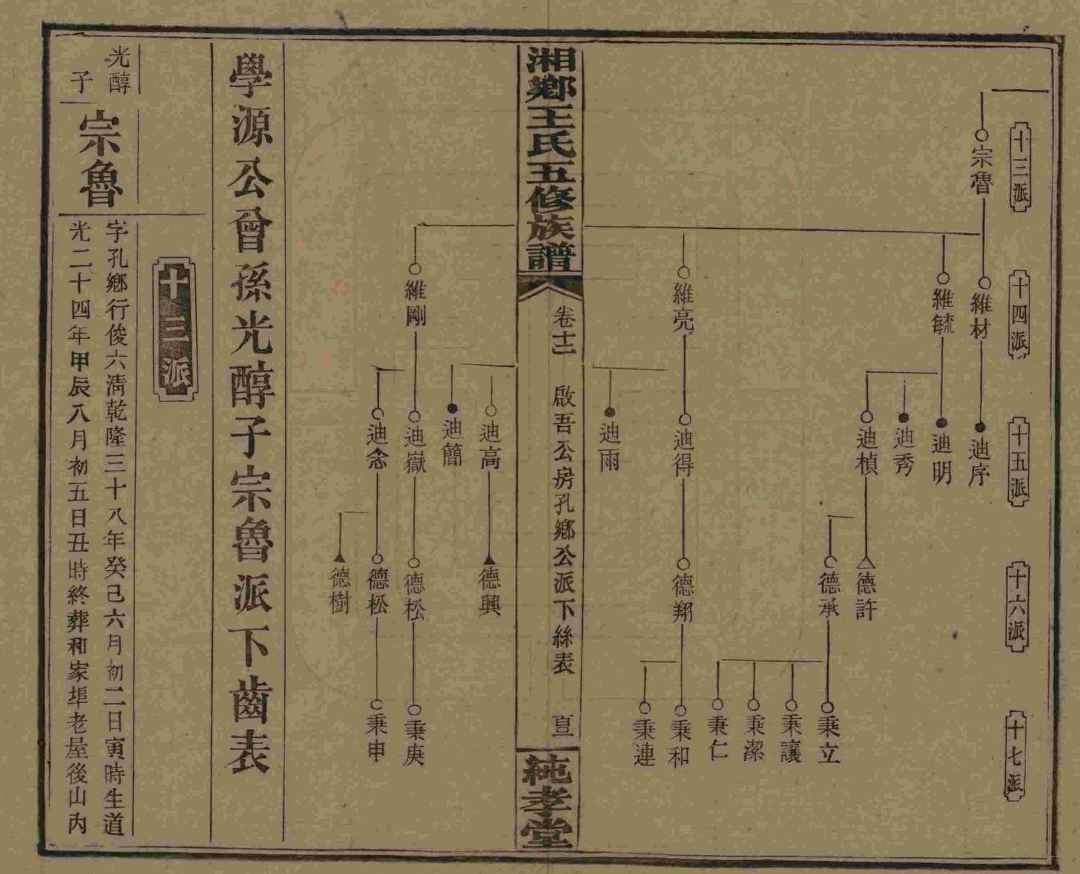 十三派
十四派
十五派
十六派
十七派
宗魯
維材
維毓
維亮
維剛
迪序
迪明
迪秀
迪楨
迪得
迪雨
迪高
迪簡
迪嶽
迪念
德許
德承
德翔
德興
德松
德松
德樹
秉立
秉讓
秉潔
秉仁
秉和
秉連
秉庚
秉申
湘鄉王氏五修族譜
卷十二
啟吾公房孔鄉公派下絲表
純孝堂
學源公曾孫光醇子宗魯派下齒表
十三派
光醇子
宗魯
字孔鄉行俊六清乾隆三十八年癸己六月初二日寅時生道
光二十四年甲辰八月初五日丑時終葬和家埠老屋後山內